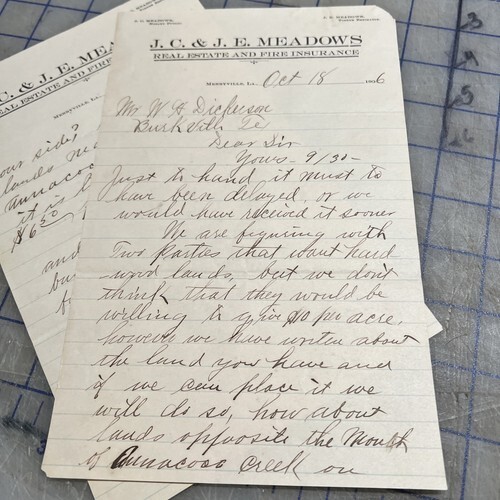 J. C. & J. E. MEADOWS
REAL ESTATE AND FIRE INSURANCE
MERRYVILLE, LA., Oct 18
Mr W. H. Dickerson
Burkville Te
Dear Sir
Yours - 9/30 -
Just to hand, it must to
have been delayed, or we
would have received it sooner
We are figuring with
Two Parties that want hard
wood lands, but we don't
think that they would be
willing to give $10 per acre.
however we have written about
the land you have and
if we can place it we
will do so, how about
lands opposite the Mouth
of Annacoco Creek on
C. & J. E. MEADOWS
REAL ESTATE AND FIRE INSURANCE
our side?
lands
annacoco
it is
$6.50
and